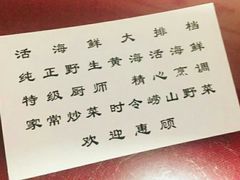 活海鲜大排档
纯正野生黄海活海鲜
特级厨师精心烹调
家常炒菜时令崂山野菜
欢迎惠顾